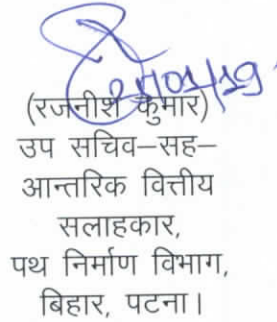 21/01/19
(रजनीश कुमार)
उप सचिव–सह–
आन्तरिक वित्तीय
सलाहकार,
पथ निर्माण विभाग,
बिहार, पटना।